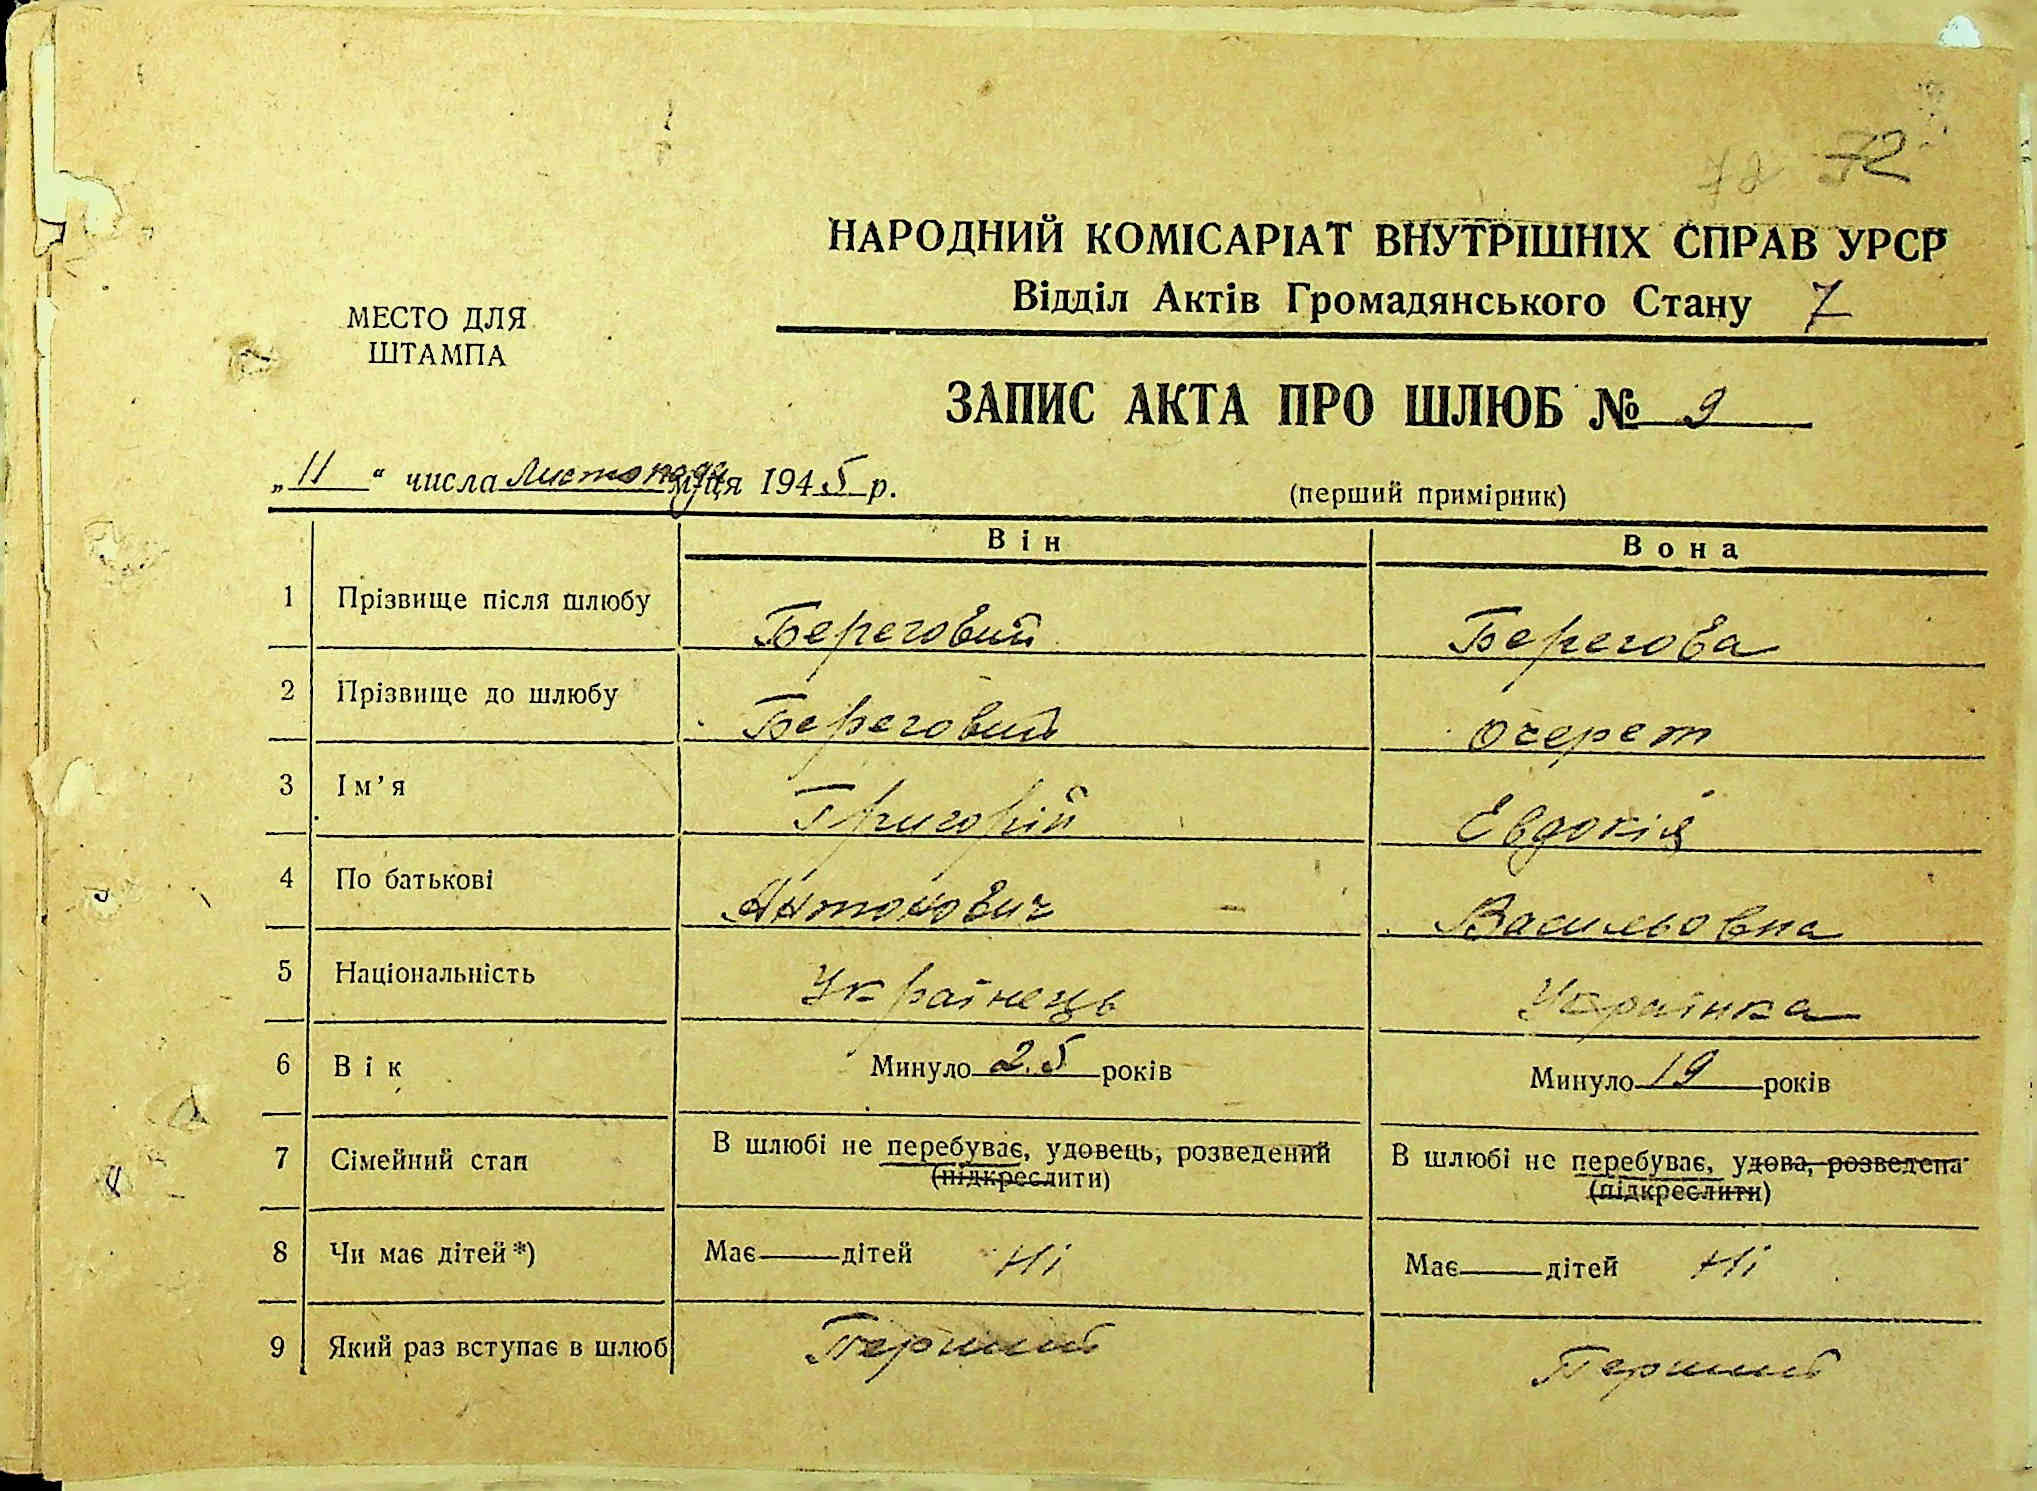 72 72
НАРОДНИЙ КОМІСАРІАТ ВНУТРІШНІХ СПРАВ УРСР
Відділ Актів Громадянського Стану 7
МЕСТО ДЛЯ
ШТАМПА
ЗАПИС АКТА ПРО ШЛЮБ № 9
„11“ числа Листопада місяця 1945 р.
(перший примірник)
Він Вона
1 Прізвище після шлюбу Береговий Берегова
2 Прізвище до шлюбу Береговий Очерет
3 Ім'я Григорій Евдокія
4 По батькові Антонович Васильовна
5 Національність Українець Українка
6 Вік Минуло 25 років Минуло 19 років
7 Сімейний стан В шлюбі не перебуває, удовець, розведений В шлюбі не перебуває, удова, розведена
(підкреслити) (підкреслити)
8 Чи має дітей*) Має дітей Ні Має дітей Ні
9 Який раз вступає в шлюб Перший Перший